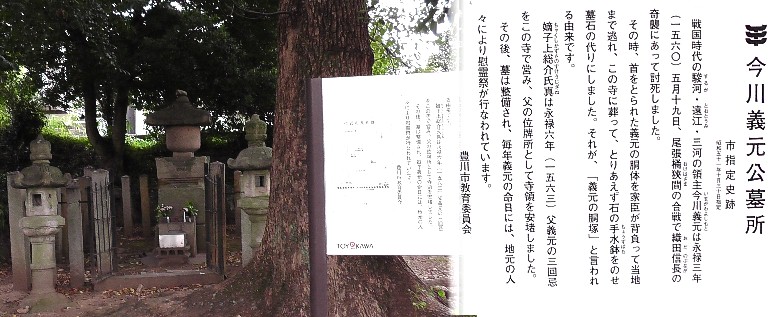 今川義元公墓所
市指定史跡
昭和五十二年十月三十日指定
戦国時代の駿河・遠江・三河の領主今川義元は永禄三年
(一五六〇)五月十九日、尾張桶狭間の合戦で織田信長の
奇襲にあって討死しました。
その時、首をとられた義元の胴体を家臣が背負って当地
まで逃れ、この寺に葬って、とりあえず石の手水鉢をのせ
墓石の代りにしました。それが、「義元の胴塚」と言われ
る由来です。
嫡子上総介氏真は永禄六年(一五六三)父義元の三回忌
をこの寺で営み、父の位牌所として寺領を安堵しました。
その後、墓は整備され、毎年義元の命日には、地元の人
々により慰霊祭が行なわれています。
豊川市教育委員会
TOYOKAWA